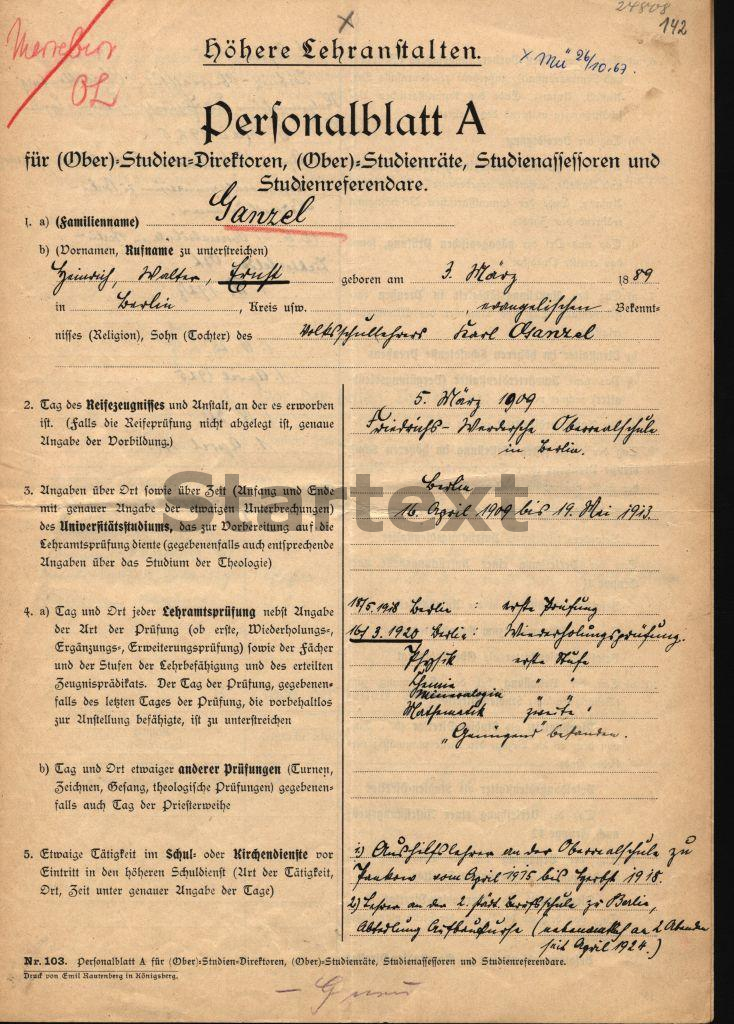 24808
142
OL
× Mü 26/10.67.
Höhere Lehranstalten.
Personalblatt A
für (Ober)-Studien-Direktoren, (Ober)-Studienräte, Studienassessoren und
Studienreferendare.
1. a) (Familienname) Ganzel
b) (Vornamen, Rufname zu unterstreichen)
Heinrich, Walter, Ernst geboren am 3. März 1889
in Berlin, Kreis usw. , evangelischen Bekennt-
nisses (Religion), Sohn (Tochter) des Volksschullehrers Karl Ganzel
2. Tag des Reifezeugnisses und Anstalt, an der es erworben
ist. (Falls die Reifeprüfung nicht abgelegt ist, genaue
Angabe der Vorbildung.)
5. März 1909
Friedrichs-Werdersche Oberrealschule
in Berlin.
3. Angaben über Ort sowie über Zeit (Anfang und Ende
mit genauer Angabe der etwaigen Unterbrechungen)
des Universitätsstudiums, das zur Vorbereitung auf die
Lehramtsprüfung diente (gegebenenfalls auch entsprechende
Angaben über das Studium der Theologie)
Berlin
16. April 1909 bis 19. Mai 1913.
Startext
4. a) Tag und Ort jeder Lehramtsprüfung nebst Angabe
der Art der Prüfung (ob erste, Wiederholungs-,
Ergänzungs-, Erweiterungsprüfung) sowie der Fächer
und der Stufen der Lehrbefähigung und des erteilten
Zeugnisprädikats. Der Tag der Prüfung, gegebenen-
falls des letzten Tages der Prüfung, die vorbehaltlos
zur Anstellung befähigte, ist zu unterstreichen
18/5.1918 Berlin : erste Prüfung
16/3.1920 Berlin: Wiederholungsprüfung.
Physik erste Stufe
Chemie " "
Mineralogie " "
Mathematik zweite "
„Genügend" bestanden.
b) Tag und Ort etwaiger anderer Prüfungen (Turnen,
Zeichnen, Gesang, theologische Prüfungen) gegebenen-
falls auch Tag der Priesterweihe
5. Etwaige Tätigkeit im Schul- oder Kirchendienste vor
Eintritt in den höheren Schuldienst (Art der Tätigkeit,
Ort, Zeit unter genauer Angabe der Tage)
1) Aushilfslehrer an der Oberrealschule zu
Pankow vom April 1915 bis Herbst 1918.
2) Lehrer an der 2. städt. Berufsschule zu Berlin,
Abteilung Aufbaukurse ( an 2 Abenden
seit April 1924.)
Nr. 103. Personalblatt A für (Ober)-Studien-Direktoren, (Ober)-Studienräte, Studienassessoren und Studienreferendare.
Druck von Emil Rautenberg in Königsberg.